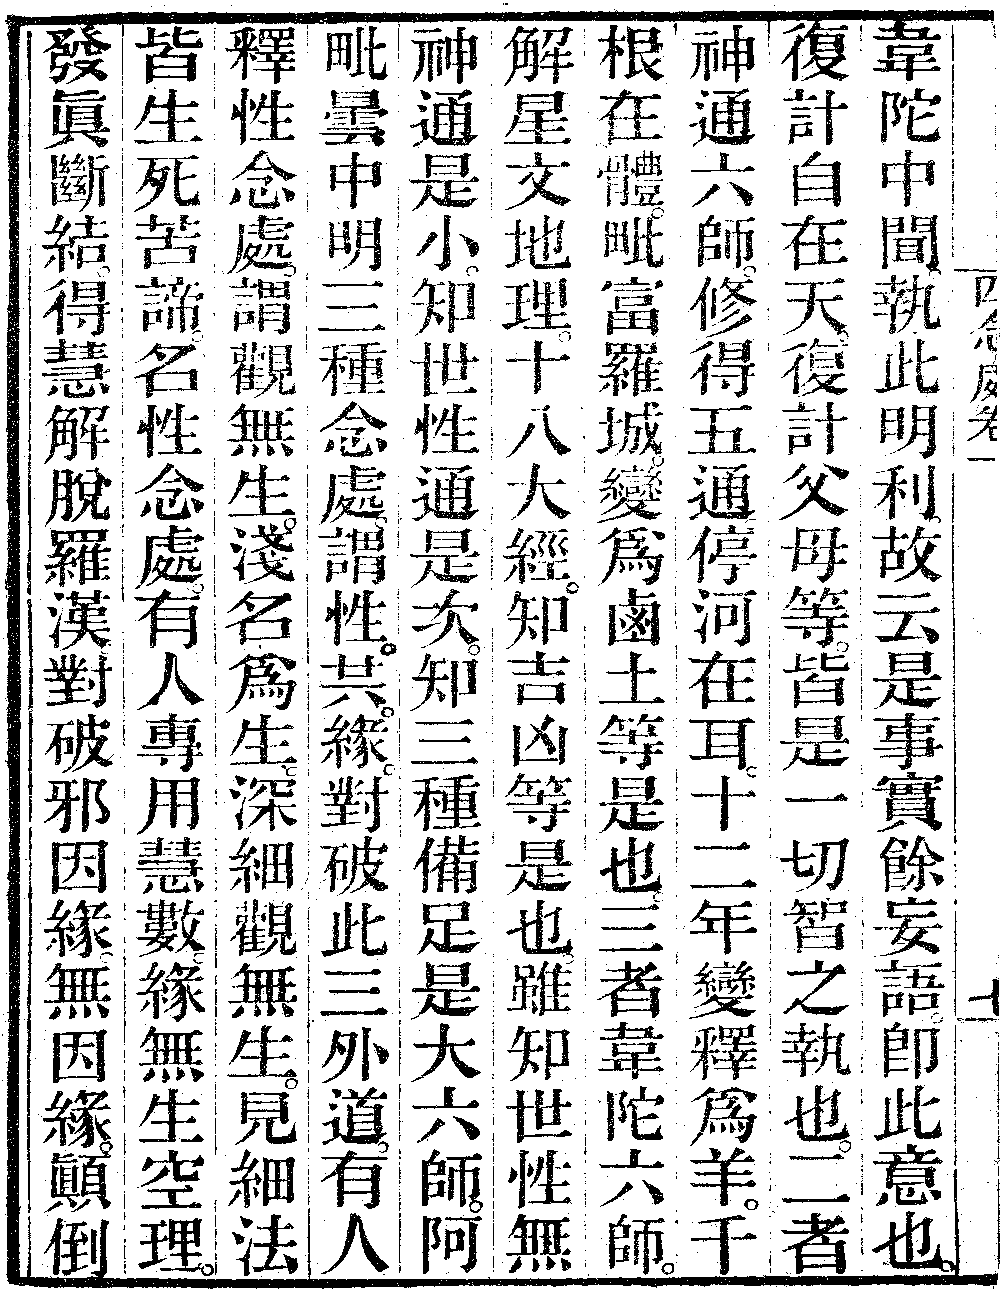 韋陀中間。執此明利。故云是事實餘妄語。卽此意也。
復計自在天。復計父母等。皆是一切智之執也。二者
神通六師。修得五通停河在耳。十二年變釋爲羊。千
根在體。毗富羅城。變爲鹵土等是也。三者韋陀六師。
解星文地理。十八大經。知吉凶等是也。雖知世性無
神通是小。知世性通是次。知三種備足是大六師。阿
毗曇中明三種念處。謂性。共。緣。對破此三外道。有人
釋性念處。謂觀無生。淺名爲生。深細觀無生。見細法
皆生死苦諦。名性念處。有人專用慧數。緣無生空理。
發眞斷結。得慧解脫羅漢對破邪因緣。無因緣。顚倒